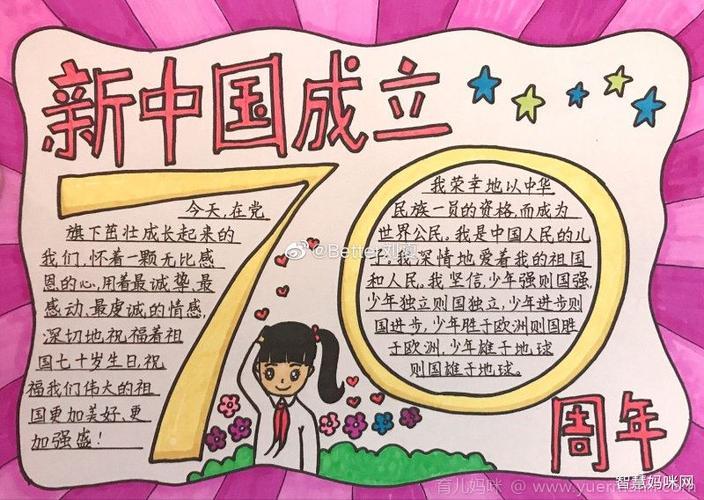 新中国成立
70
周年
今天,在党
旗下茁壮成长起来的
我们,怀着一颗无比感
恩的心,用着最诚挚、最
感动、最虔诚的情感,
深切地祝福着祖
国七十岁生日,祝
福我们伟大的祖
国更加美好、更
加强盛!
我荣幸地以中华
民族一员的资格,而成为
世界公民。我是中国人民的儿
子。我深情地爱着我的祖国
和人民。我坚信,少年强则国强,
少年独立则国独立,少年进步则
国进步,少年胜于欧洲则国胜
于欧洲,少年雄于地球
则国雄于地球。
@Better刘夏
育儿妈咪 @ www.yuer
智慧妈咪网